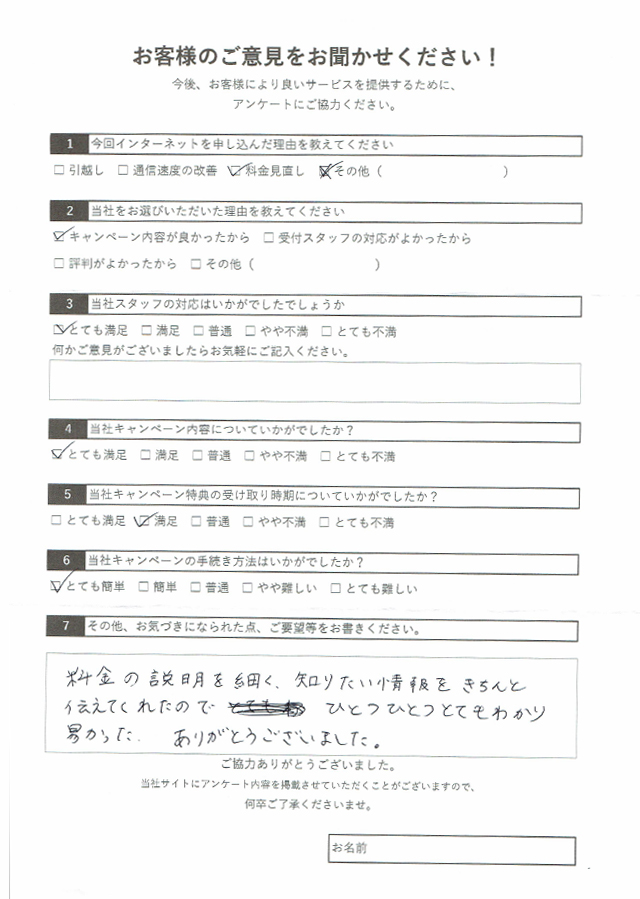 お客様のご意見をお聞かせください！
今後、お客様により良いサービスを提供するために、
アンケートにご協力ください。
1 今回インターネットを申し込んだ理由を教えてください
□ 引越し □ 通信速度の改善 ☑ 料金見直し ☒ その他（ ）
2 当社をお選びいただいた理由を教えてください
☑ キャンペーン内容が良かったから □ 受付スタッフの対応がよかったから
□ 評判がよかったから □ その他（ ）
3 当社スタッフの対応はいかがでしたでしょうか
☑ とても満足 □ 満足 □ 普通 □ やや不満 □ とても不満
何かご意見がございましたらお気軽にご記入ください。
4 当社キャンペーン内容についていかがでしたか？
☑ とても満足 □ 満足 □ 普通 □ やや不満 □ とても不満
5 当社キャンペーン特典の受け取り時期についていかがでしたか？
□ とても満足 ☑ 満足 □ 普通 □ やや不満 □ とても不満
6 当社キャンペーンの手続き方法はいかがでしたか？
☑ とても簡単 □ 簡単 □ 普通 □ やや難しい □ とても難しい
7 その他、お気づきになられた点、ご要望等をお書きください。
料金の説明を細く、知りたい情報をきちんと
伝えてくれたので ひとつひとつとてもわかり
易かった. ありがとうございました。
ご協力ありがとうございました。
当社サイトにアンケート内容を掲載させていただくことがございますので、
何卒ご了承くださいませ。
お名前